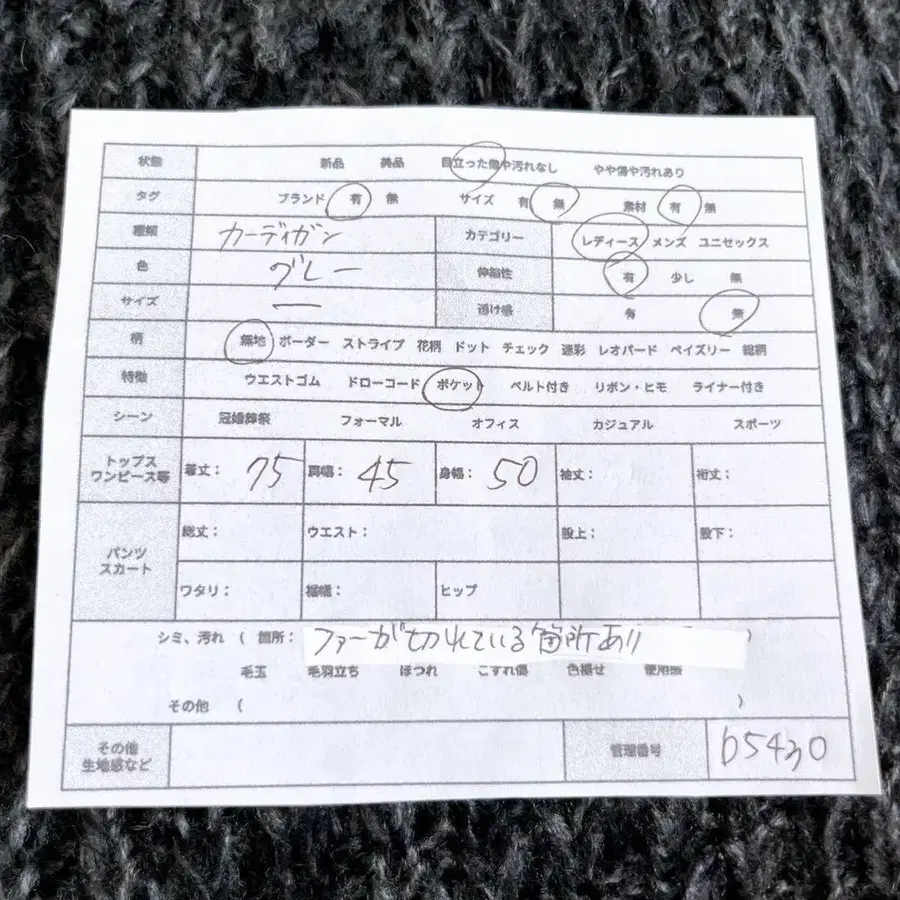 状態 新品 美品 目立った傷や汚れなし やや傷や汚れあり
タグ ブランド 有 無 サイズ 有 無 素材 有 無
種類 カーディガン カテゴリー レディース メンズ ユニセックス
色 グレー 伸縮性 有 少し 無
サイズ ー 透け感 有 無
柄 無地 ボーダー ストライプ 花柄 ドット チェック 迷彩 レオパード ペイズリー 総柄
特徴 ウエストゴム ドローコード ポケット ベルト付き リボン・ヒモ ライナー付き
シーン 冠婚葬祭 フォーマル オフィス カジュアル スポーツ
トップス
ワンピース等 着丈: 75 肩幅: 45 身幅: 50 袖丈: 裄丈:
パンツ
スカート
総丈: ウエスト: 股上: 股下:
ワタリ: 裾幅: ヒップ
シミ、汚れ ( 箇所: ファーが切れている箇所あり )
毛玉 毛羽立ち ほつれ こすれ傷 色褪せ 使用感
その他 ( )
その他
生地感など 管理番号 b5430